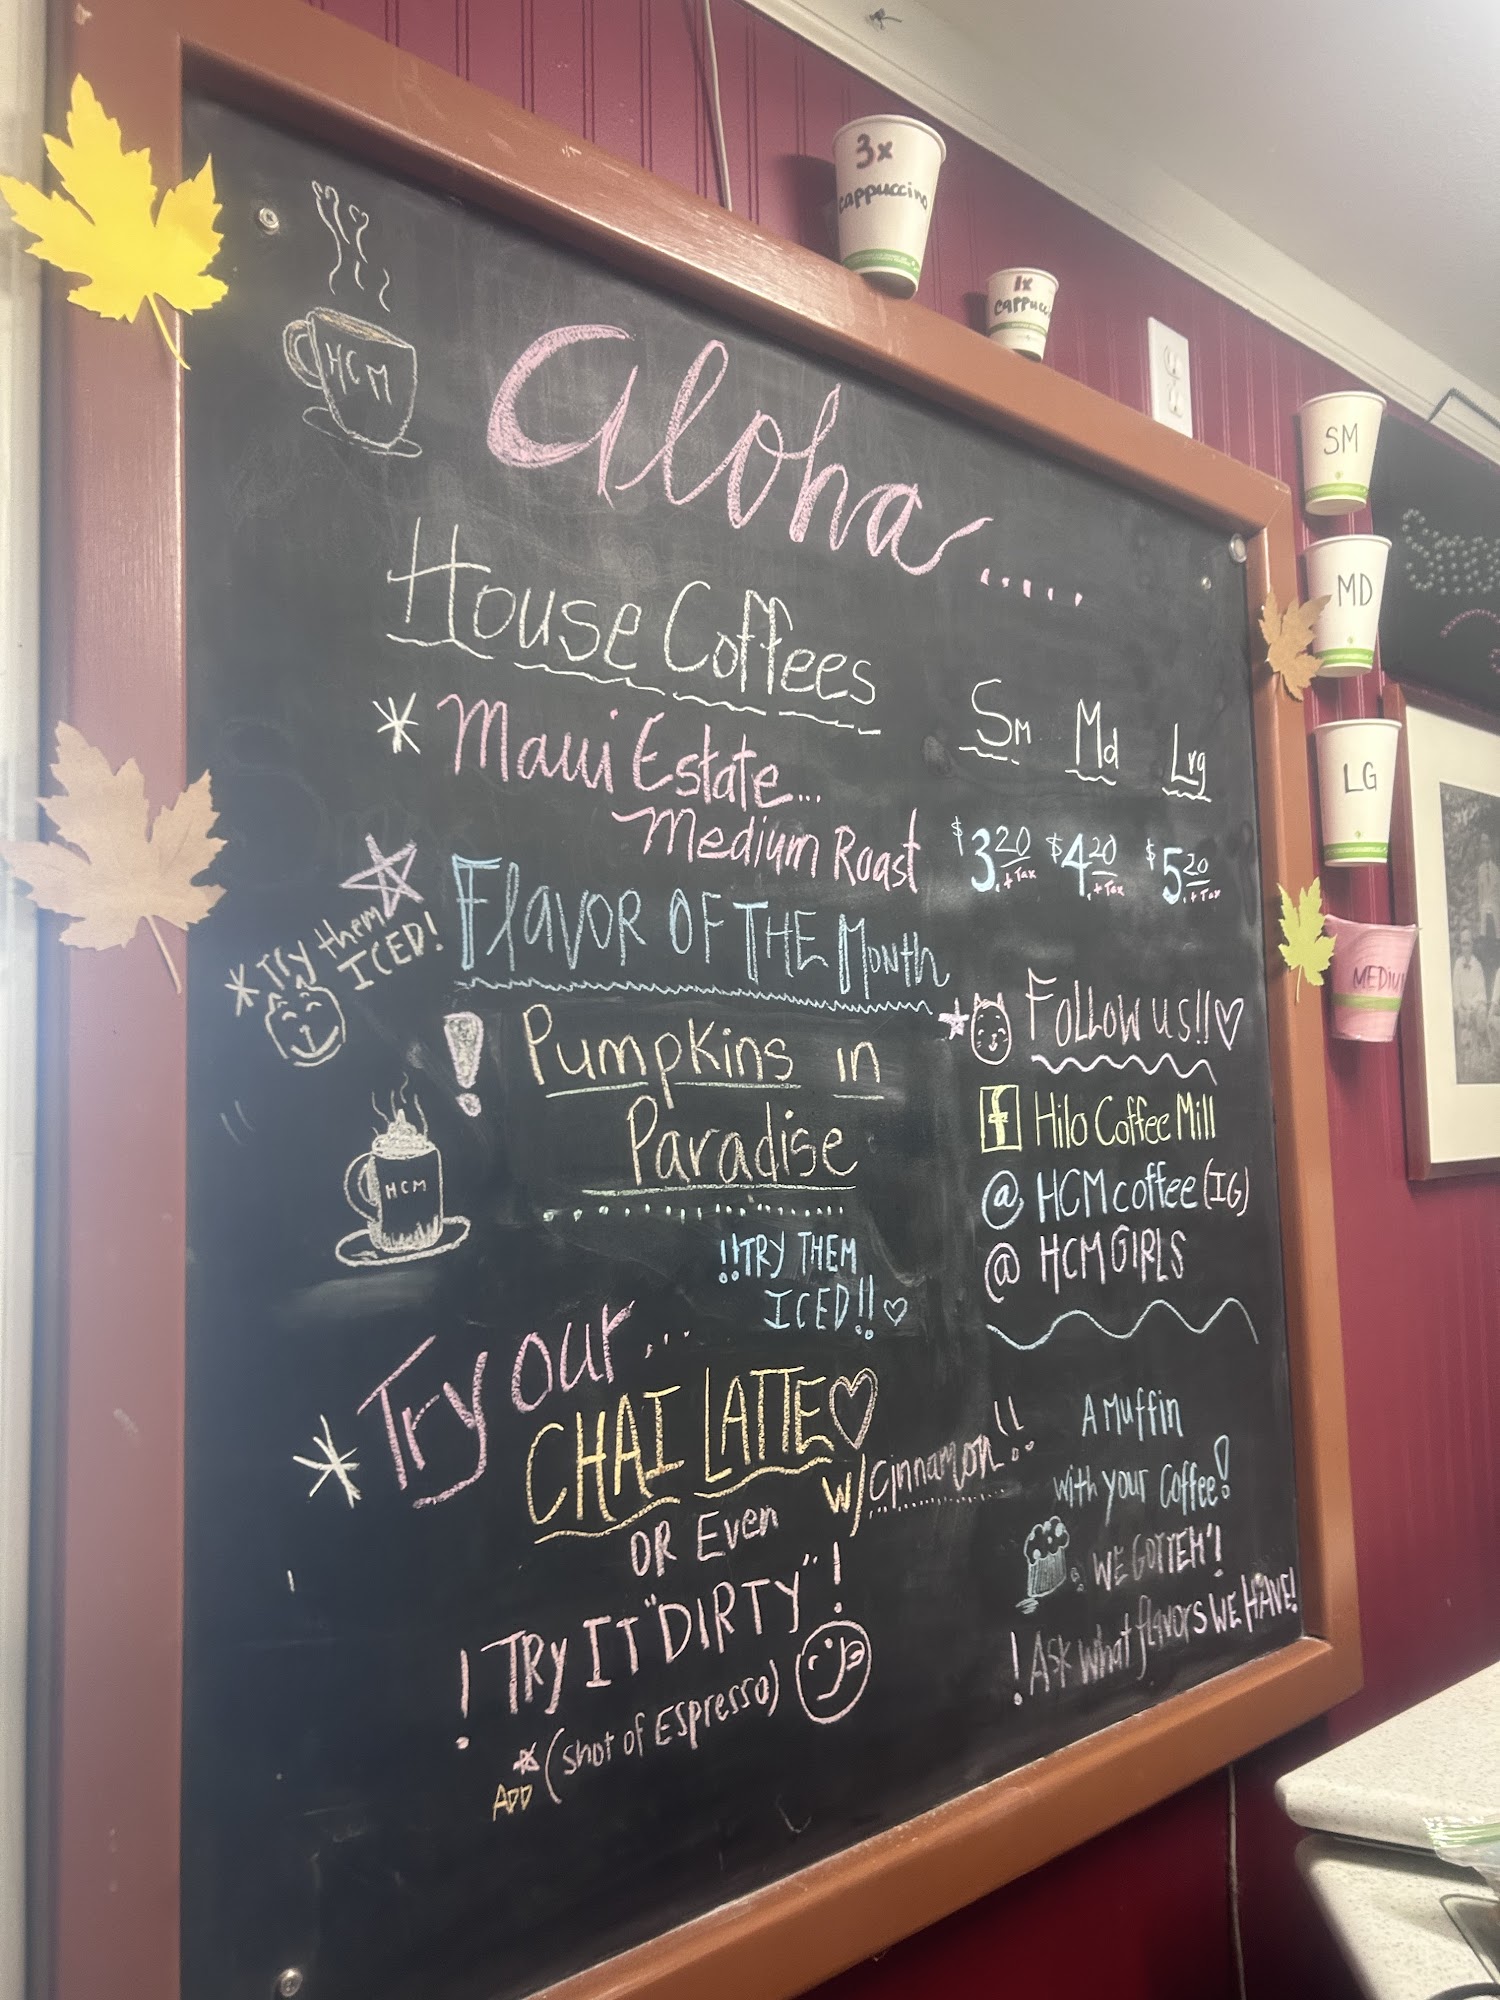 3x
cappuccino
1x
SM
MD
LG
HCM
aloha.....
House Coffees
* Maui Estate...
Medium Roast
Sm Md Lrg
$3.20 + Tax $4.20 + Tax $5.20 + Tax
* Try them
ICED!
Flavor OF THE Month
! Pumpkins in
Paradise
HCM
!!TRY THEM
ICED!! ♡
* Follow us!! ♡
f Hilo Coffee Mill
@ HCMcoffee (IG)
@ HCMGIRLS
* Try our...
CHAI LATTE ♡
w/cinnamon!!
OR Even
! TRY IT "DIRTY"!
* (shot of Espresso)
ADD
A Muffin
with your Coffee!
WE GOTTEM'!
! Ask what flavors WE HAVE!